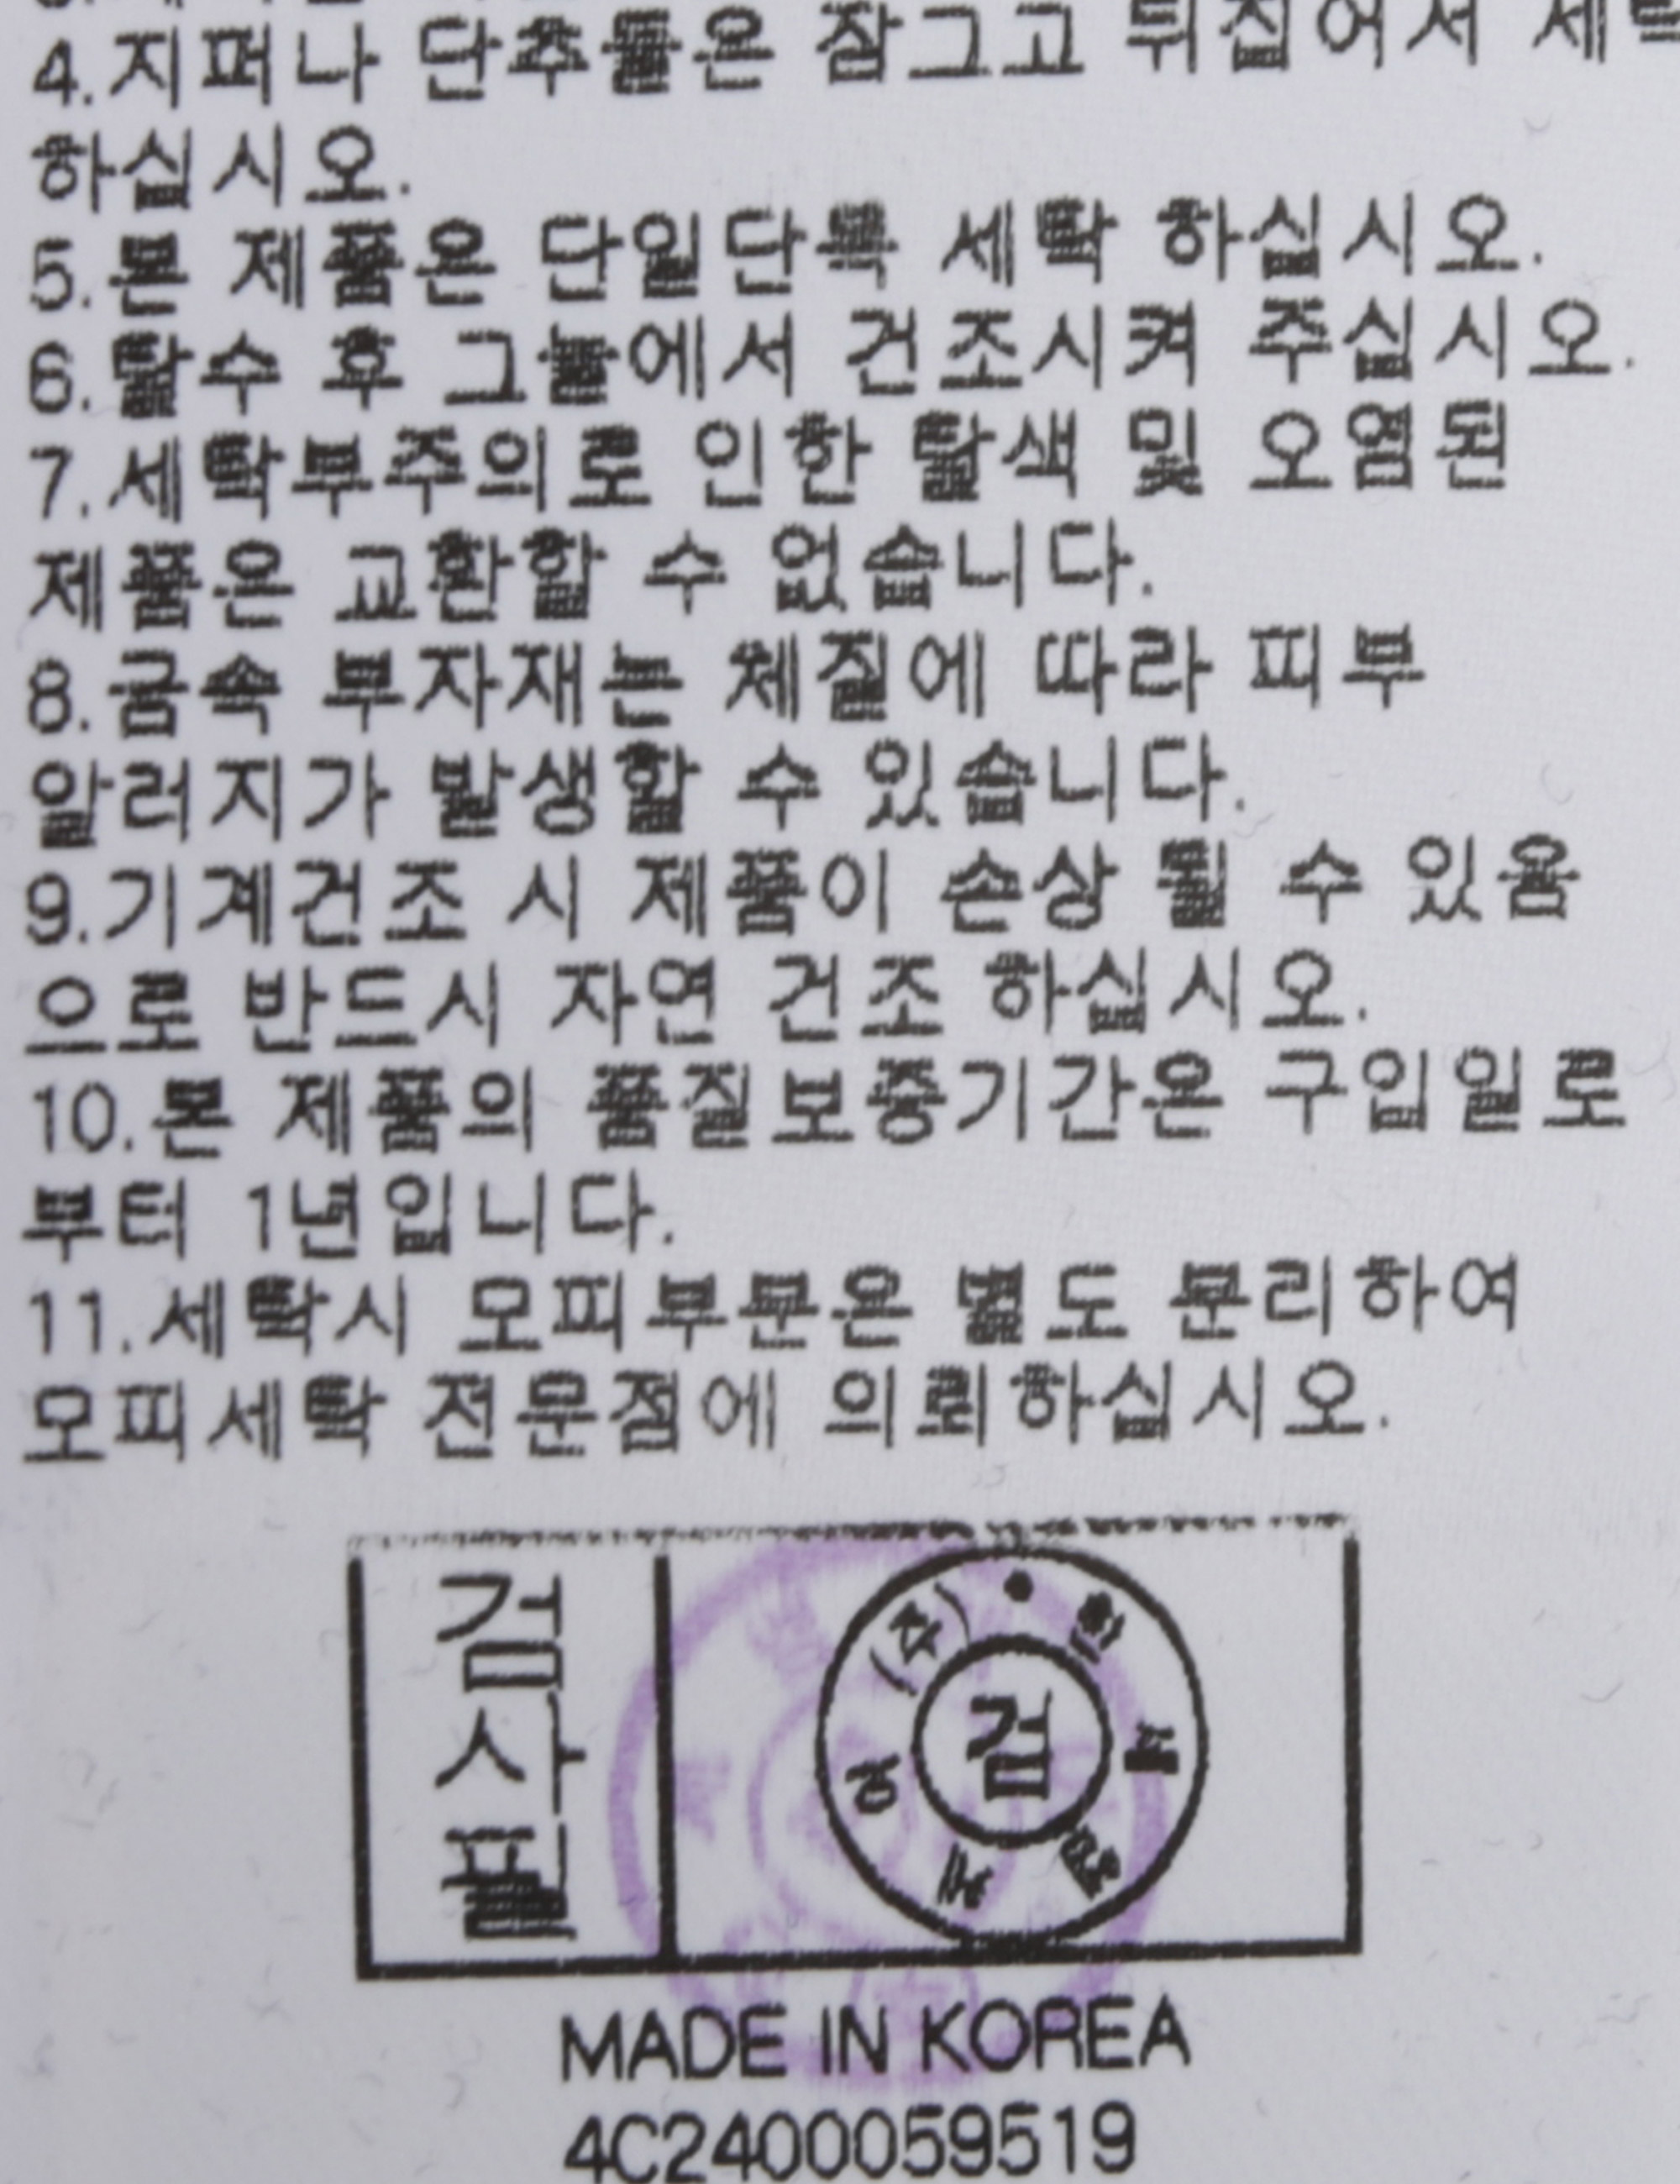 4.지퍼나 단추들은 잠그고 뒤집어서
하십시오.
5.본 제품은 단일단독 세탁 하십시오.
6.탈수 후 그늘에서 건조시켜 주십시오.
7.세탁부주의로 인한 탈색 및 오염된
제품은 교환할 수 없습니다.
8.금속 부자재는 체질에 따라 피부
알러지가 발생할 수 있습니다.
9.기계건조 시 제품이 손상 될 수 있음
으로 반드시 자연 건조 하십시오.
10.본 제품의 품질보증기간은 구입일로
부터 1년입니다.
11.세탁시 모피부분은 별도 분리하여
모피세탁 전문점에 의뢰하십시오.
검사필
검
MADE IN KOREA
4C2400059519